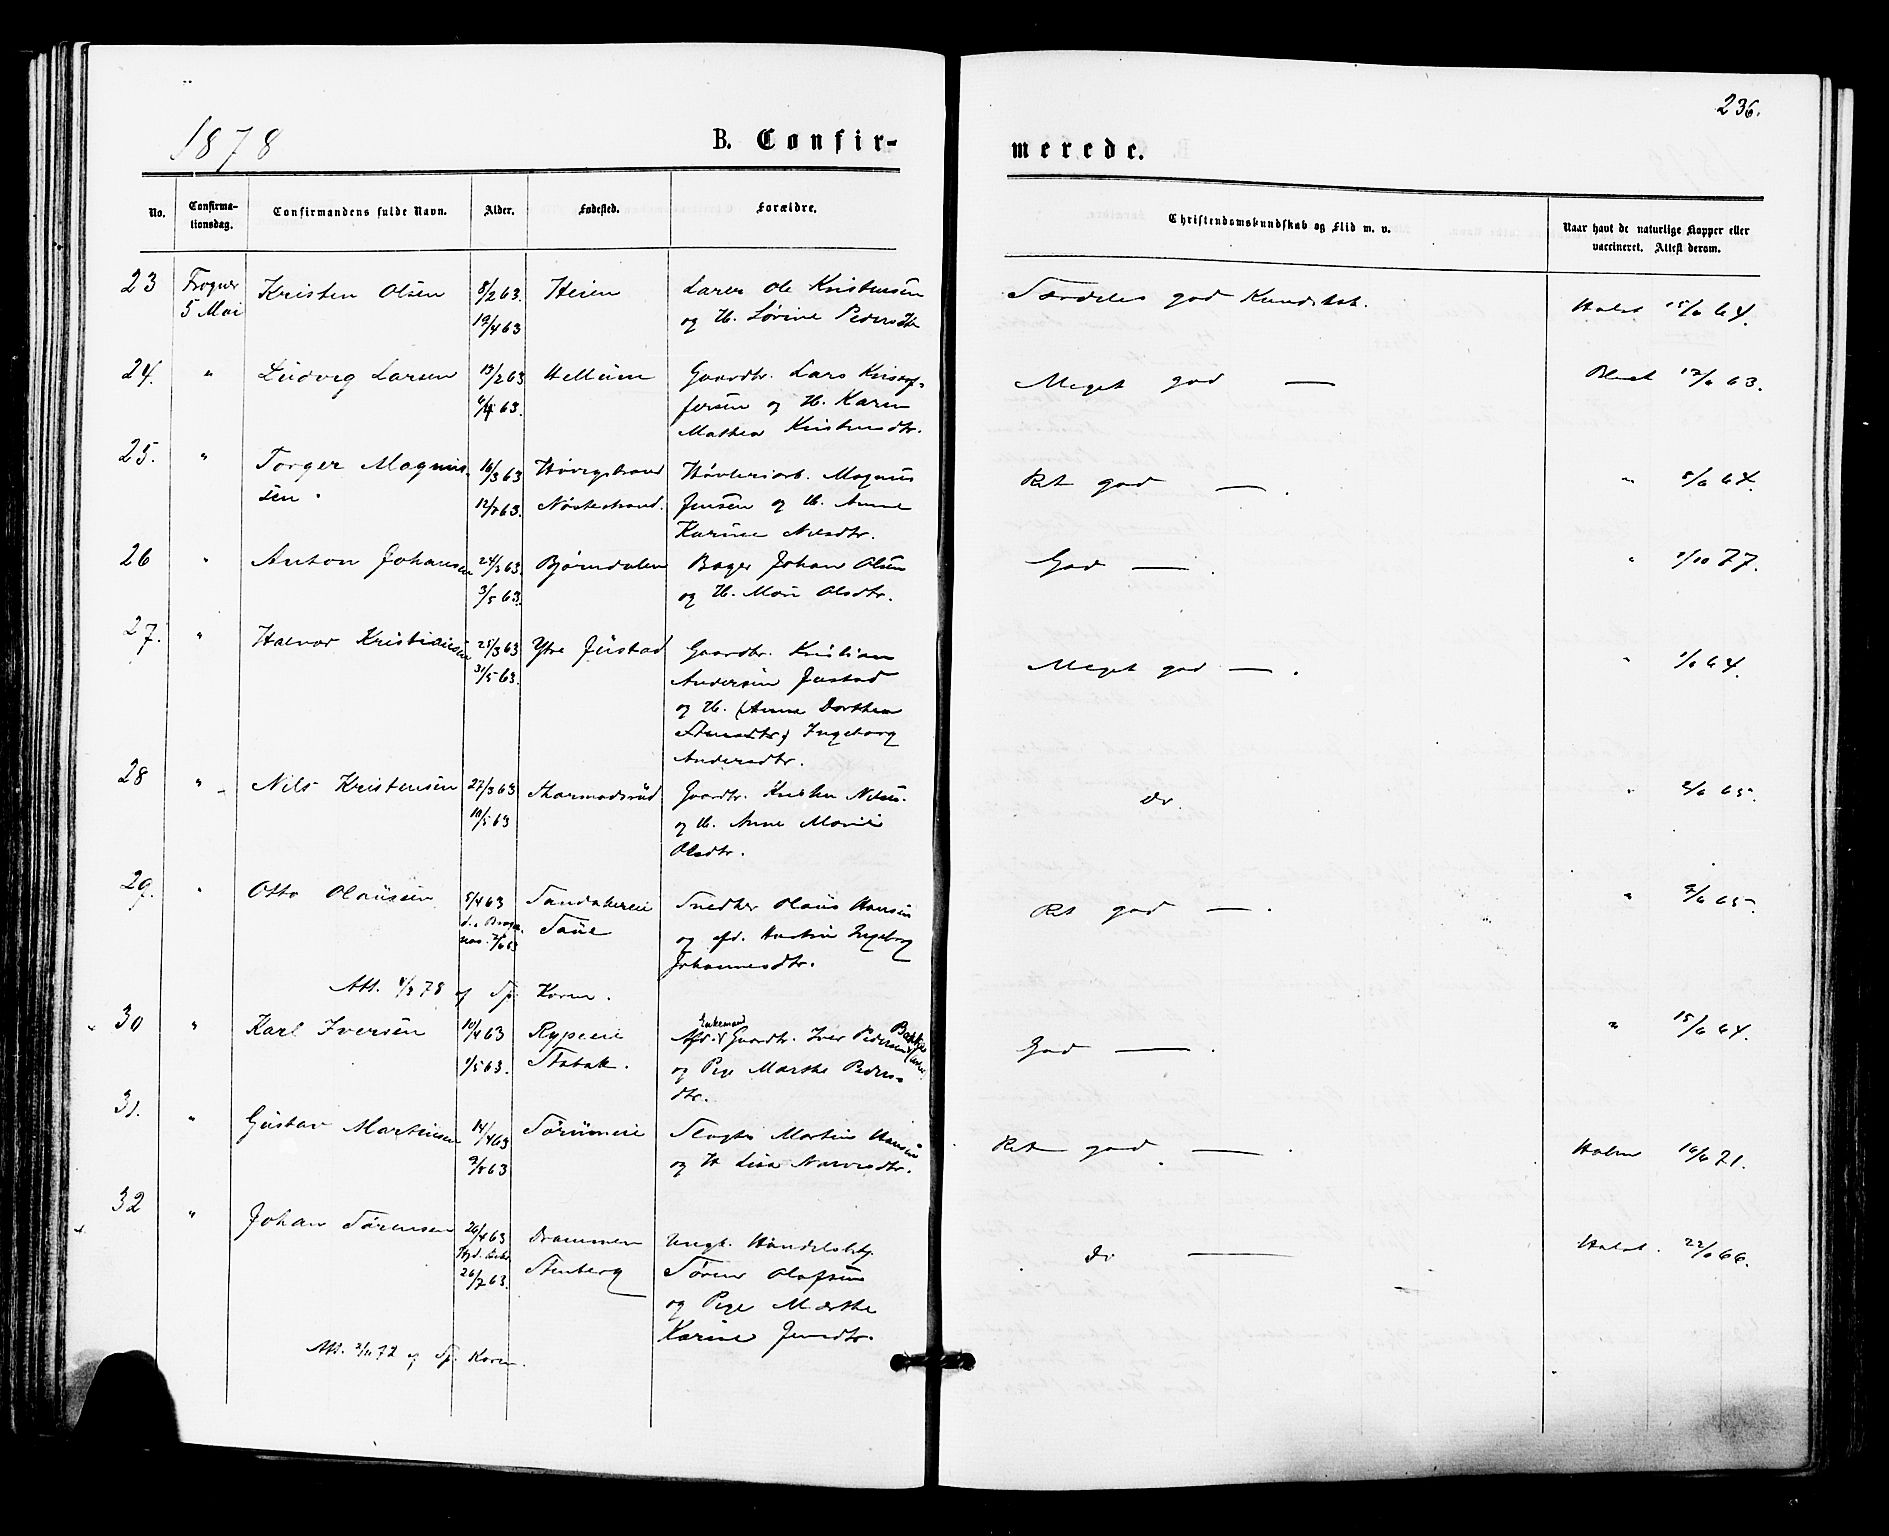 236.
1878
B. Confir-
merede.
No.
Confirma-
tionsdag.
Confirmandens fulde Navn.
Alder.
Fødested.
Forældre.
Christendomskundskab og Flid m. v.
Naar havt de naturlige Kopper eller
vaccineret. Attest derom.
23 Frogner Kristen Olsen 8/2 63. Heien Lærer Ole Kristensen Særdeles god Kundskab. Holst 15/6 64.
5 Mai 19/4 63 og H. Lørine Pedersdtr
24. " Ludvig Larsen 13/2 63 Hellum Gaardbr. Lars Kristof- Meget god — 12/6 63.
6/4 63. fersen og H. Karen
Mathea Kristensdtr.
25. " Torger Magnus- 16/3 63 Høvleriarb. Magnus Ret god — . " 5/6 64.
sen 12/7 63. Nøstestrand. Jensen og H. Anne
Karine Nilsdtr.
26 " Anton Johansen 24/3 63. Bjørndalen Bager Johan Olsen God — . " 1/10 77.
3/5 63. og H. Mari Olsdtr.
27. " Halvor Kristiansen 25/3 63 Ytre Justad Gaardbr. Kristian Meget god — . " 1/6 64.
31/5 63. Andersen Justad
og H. (Anne Dorthea
Ingeborg
Andersdtr.
28 " Nils Kristensen 27/3 63 Gaardbr. Kristen Nilsen Do. " 2/6 65.
10/5 63 og H. Anne Marie
Olsdtr.
29. " Otto Olausen 5/4 63 Snedker Olaus Hansen Ret god — . " 9/6 65.
og afd. Hustru Ingeborg
Johannesdtr.
Att. 4/3 78 af Sp. Koren.
30 " Karl Iversen 10/4 63 Rypeeie Enkemand Gaardbr. Iver Pedersen God — . " 15/6 64.
1/5 63. Stabæk. og Pige Marthe Peders-
dtr.
31. " Gustav Martinsen 14/4 63 Sørumeie Martin Hansen Ret god — . 16/6 71.
9/7 63 og H Lisa
32 " Johan Sørensen 26/4 63 Drammen Ungk. Handelsbetj. Do — Holst. 22/6 66.
26/7 63. Stenberg Søren Olafsen
og Pige Marthe
Karine Jensdtr.
Att. af Sp. Koren.